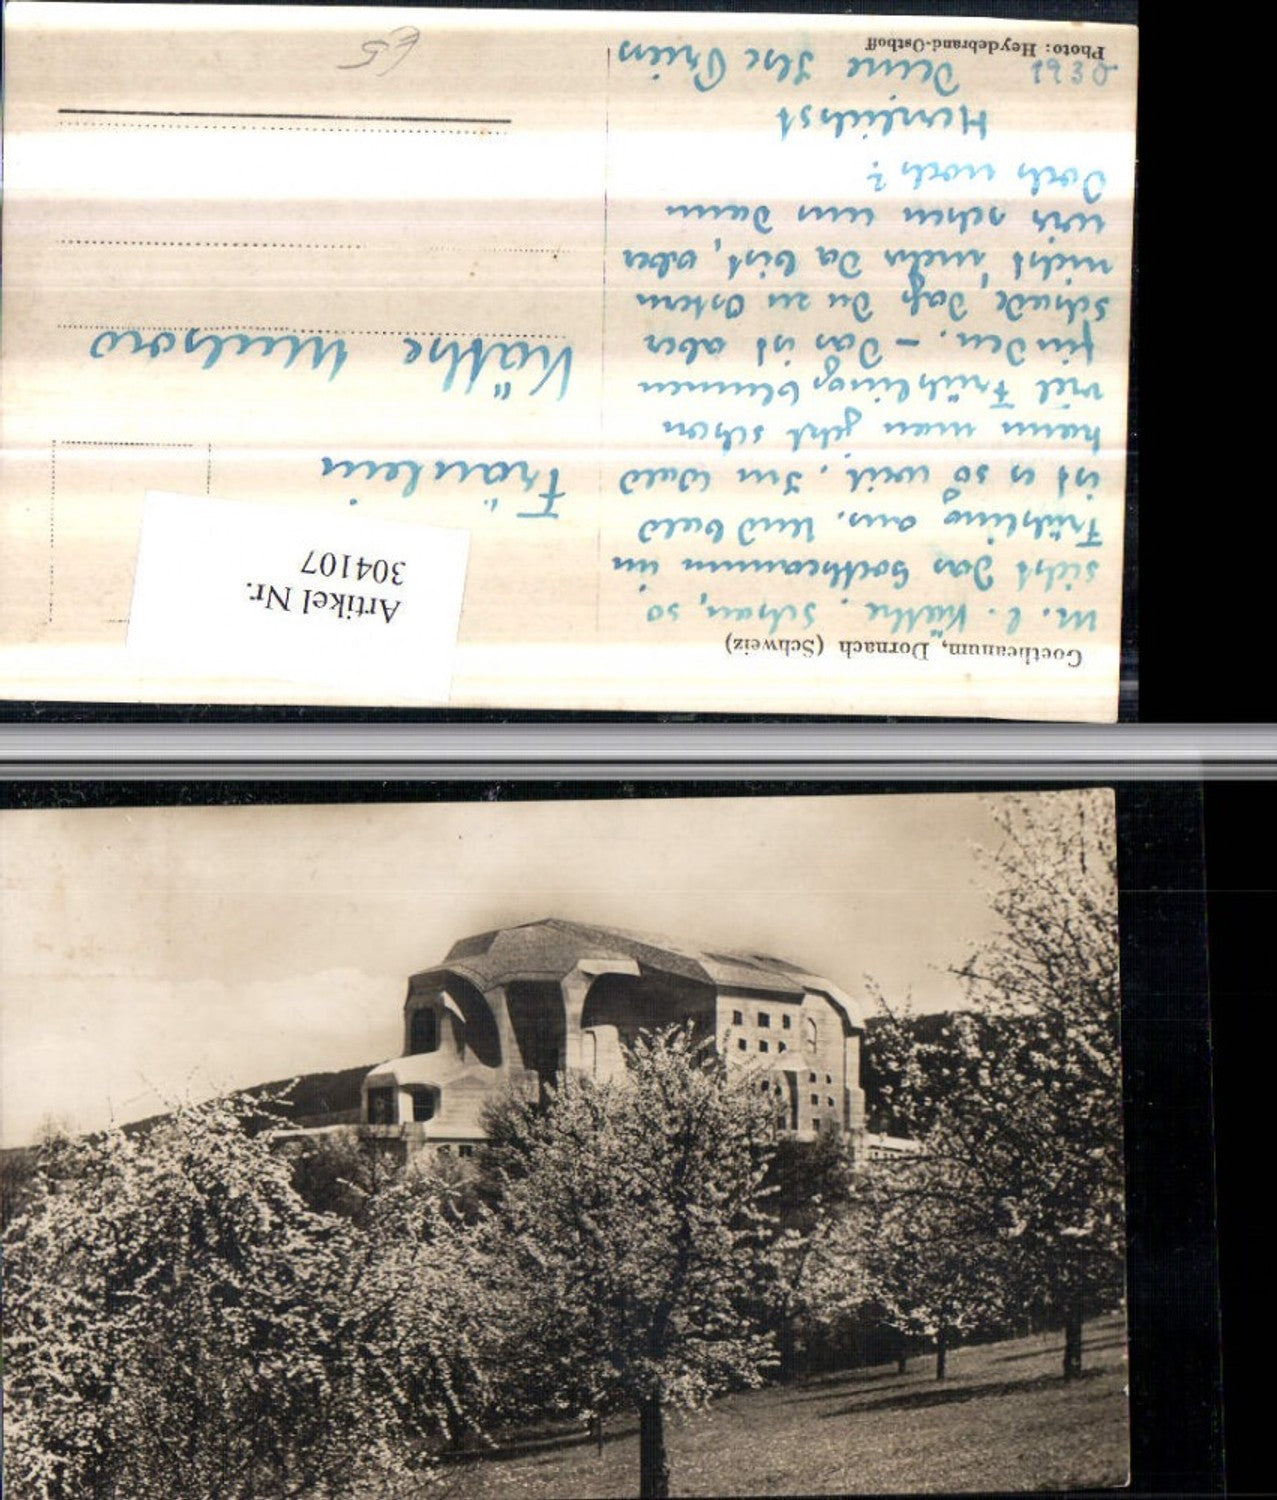 Goetheanum, Dornach (Schweiz)
M. l. Käthe, schau, so
sieht das Goetheanum im
Frühling aus. Und bald
ist es so weit. Im Wald
kann man jetzt schon
viel Frühlingsblumen
finden. – Das ist aber
schade, daß Du zu Ostern
nicht mehr da bist, aber
wir sehen uns dann
doch noch?
Herzlichst
Deine Ilse
1930
Photo: Heydebrand-Osthoff
Fräulein
Käthe
Artikel Nr.
304107